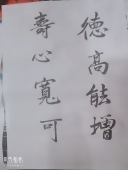 德高能增
壽心寬可